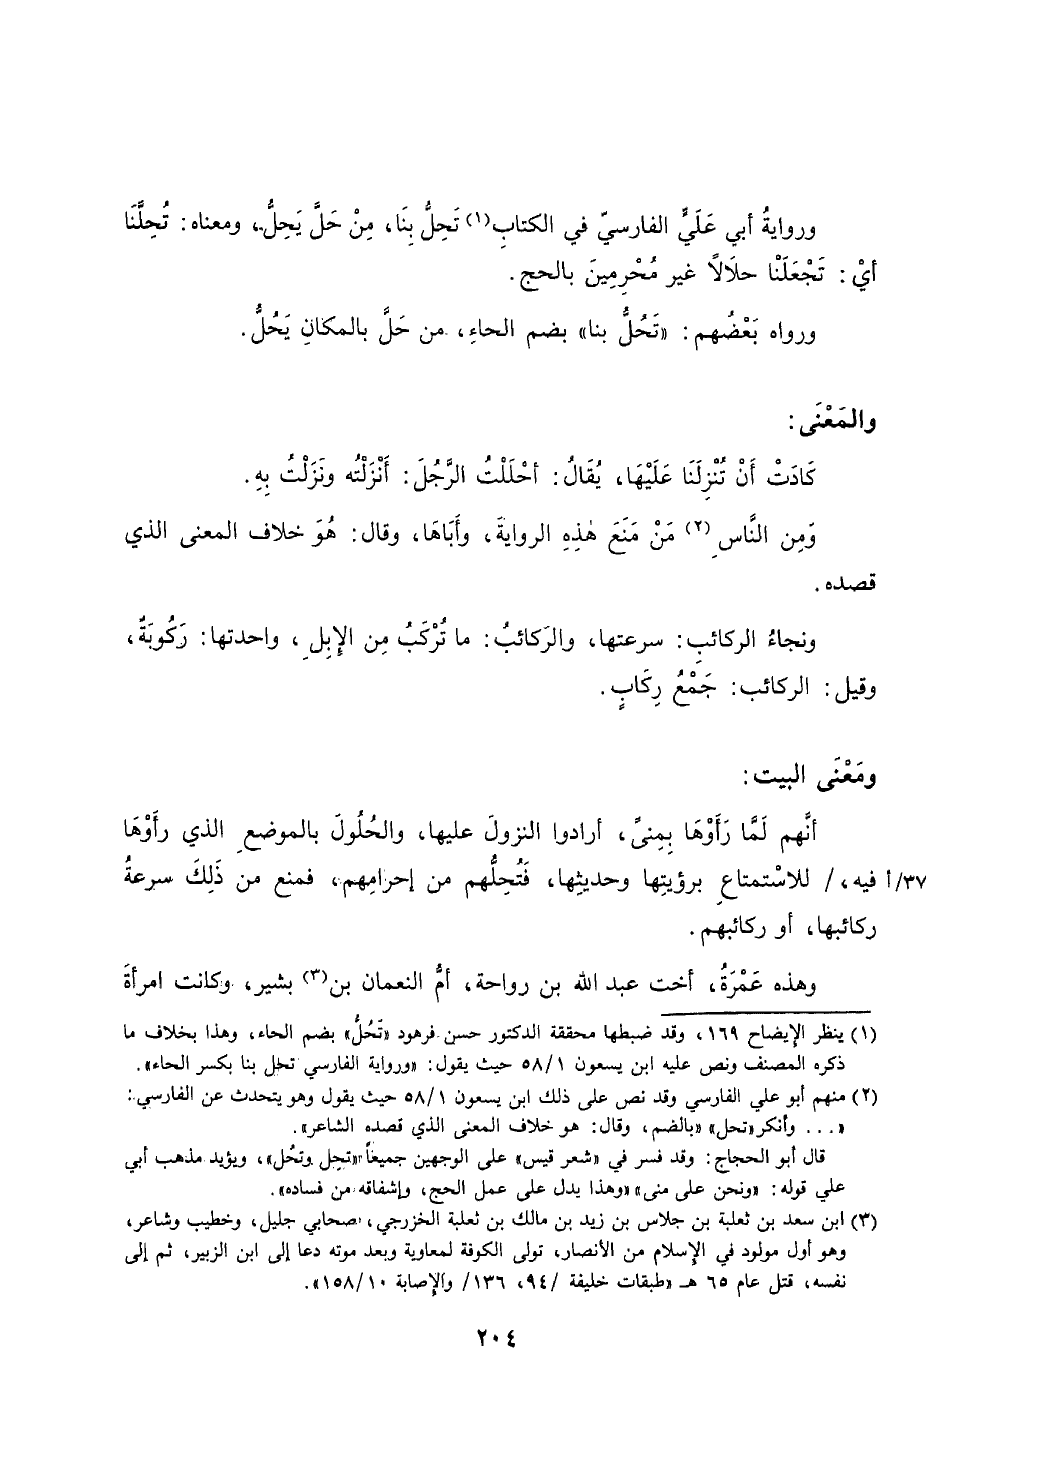 وروايةُ أبي عَلَيٍّ الفارسيّ في الكتابِ(١) تَحِلُّ بِنَا، مِنْ حَلَّ يَحِلُّ، ومعناه: تُحِلَّنَا
أيْ: تَجْعَلَنْا حلَالاً غير مُحْرِمِينَ بالحج.
ورواه بَعْضُهم: «تَحُلُّ بنا» بضم الحاءِ، من حَلَّ بالمكانِ يَحُلُّ.
والمَعْنَى:
كَادَتْ أَنْ تُنْزِلَنَا عَلَيْهَا، يُقَالُ: أحْلَلْتُ الرَّجُلَ: أَنْزَلْتُه ونَزَلْتُ بِهِ.
وَمِن النَّاسِ(٢) مَنْ مَنَعَ هٰذِهِ الروايةَ، وأَبَاهَا، وقال: هُوَ خلاف المعنى الذي
قصده.
ونجاءُ الركائبِ: سرعتها، والرَكائبُ: ما تُرْكَبُ مِن الإبِلِ، واحدتها: رَكُوبَةٌ،
وقيل: الركائب: جَمْعُ رِكَابٍ.
ومَعْنَى البيت:
أنَّهم لَمَّا رَأَوْهَا بِمِنىً، أرادوا النزولَ عليها، والحُلُولَ بالموضعِ الذي رأَوْهَا
٣٧/أ فيه، / للاسْتمتاعِ برؤيتِها وحديثِها، فَتُحِلُّهم من إحرامِهم، فمنع من ذَلِكَ سرعةُ
ركائبها، أو ركائبهم.
وهذه عَمْرَةُ، أخت عبد الله بن رواحة، أمُّ النعمان بن(٣) بشير، وكانت امرأةَ
(١) ينظر الإيضاح ١٦٩، وقد ضبطها محققة الدكتور حسن فرهود «تَحُلُّ» بضم الحاء، وهذا بخلاف ما
ذكره المصنف ونص عليه ابن يسعون ٥٨/١ حيث يقول: «ورواية الفارسي تحل بنا بكسر الحاء».
(٢) منهم أبو علي الفارسي وقد نص على ذلك ابن يسعون ٥٨/١ حيث يقول وهو يتحدث عن الفارسي:
«... وأنكر «تحل» «بالضم، وقال: هو خلاف المعنى الذي قصده الشاعر».
قال أبو الحجاج: وقد فسر في «شعر قيس» على الوجهين جميعاً «تحِل وتحُل»، ويؤيد مذهب أبي
علي قوله: «ونحن على منى» «وهذا يدل على عمل الحج، وإشفاقه من فساده».
(٣) ابن سعد بن ثعلبة بن جلاس بن زيد بن مالك بن ثعلبة الخزرجي، صحابي جليل، وخطيب وشاعر،
وهو أول مولود في الإسلام من الأنصار، تولى الكوفة لمعاوية وبعد موته دعا إلى ابن الزبير، ثم إلى
نفسه، قتل عام ٦٥ هـ «طبقات خليفة /٩٤، ١٣٦/ والإصابة ١٥٨/١٠».
٢٠٤